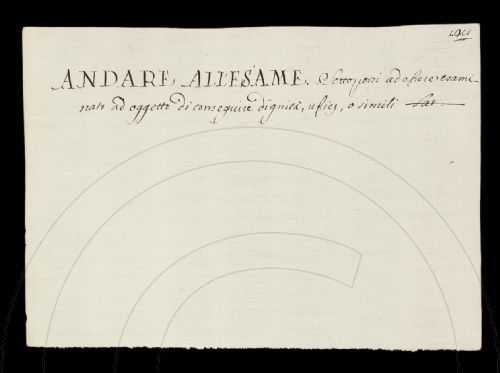 ANDARE, ALL'ESAME. Sottoporsi ad essere esami-
nato ad oggetto di conseguire dignità, ufizj, o simili